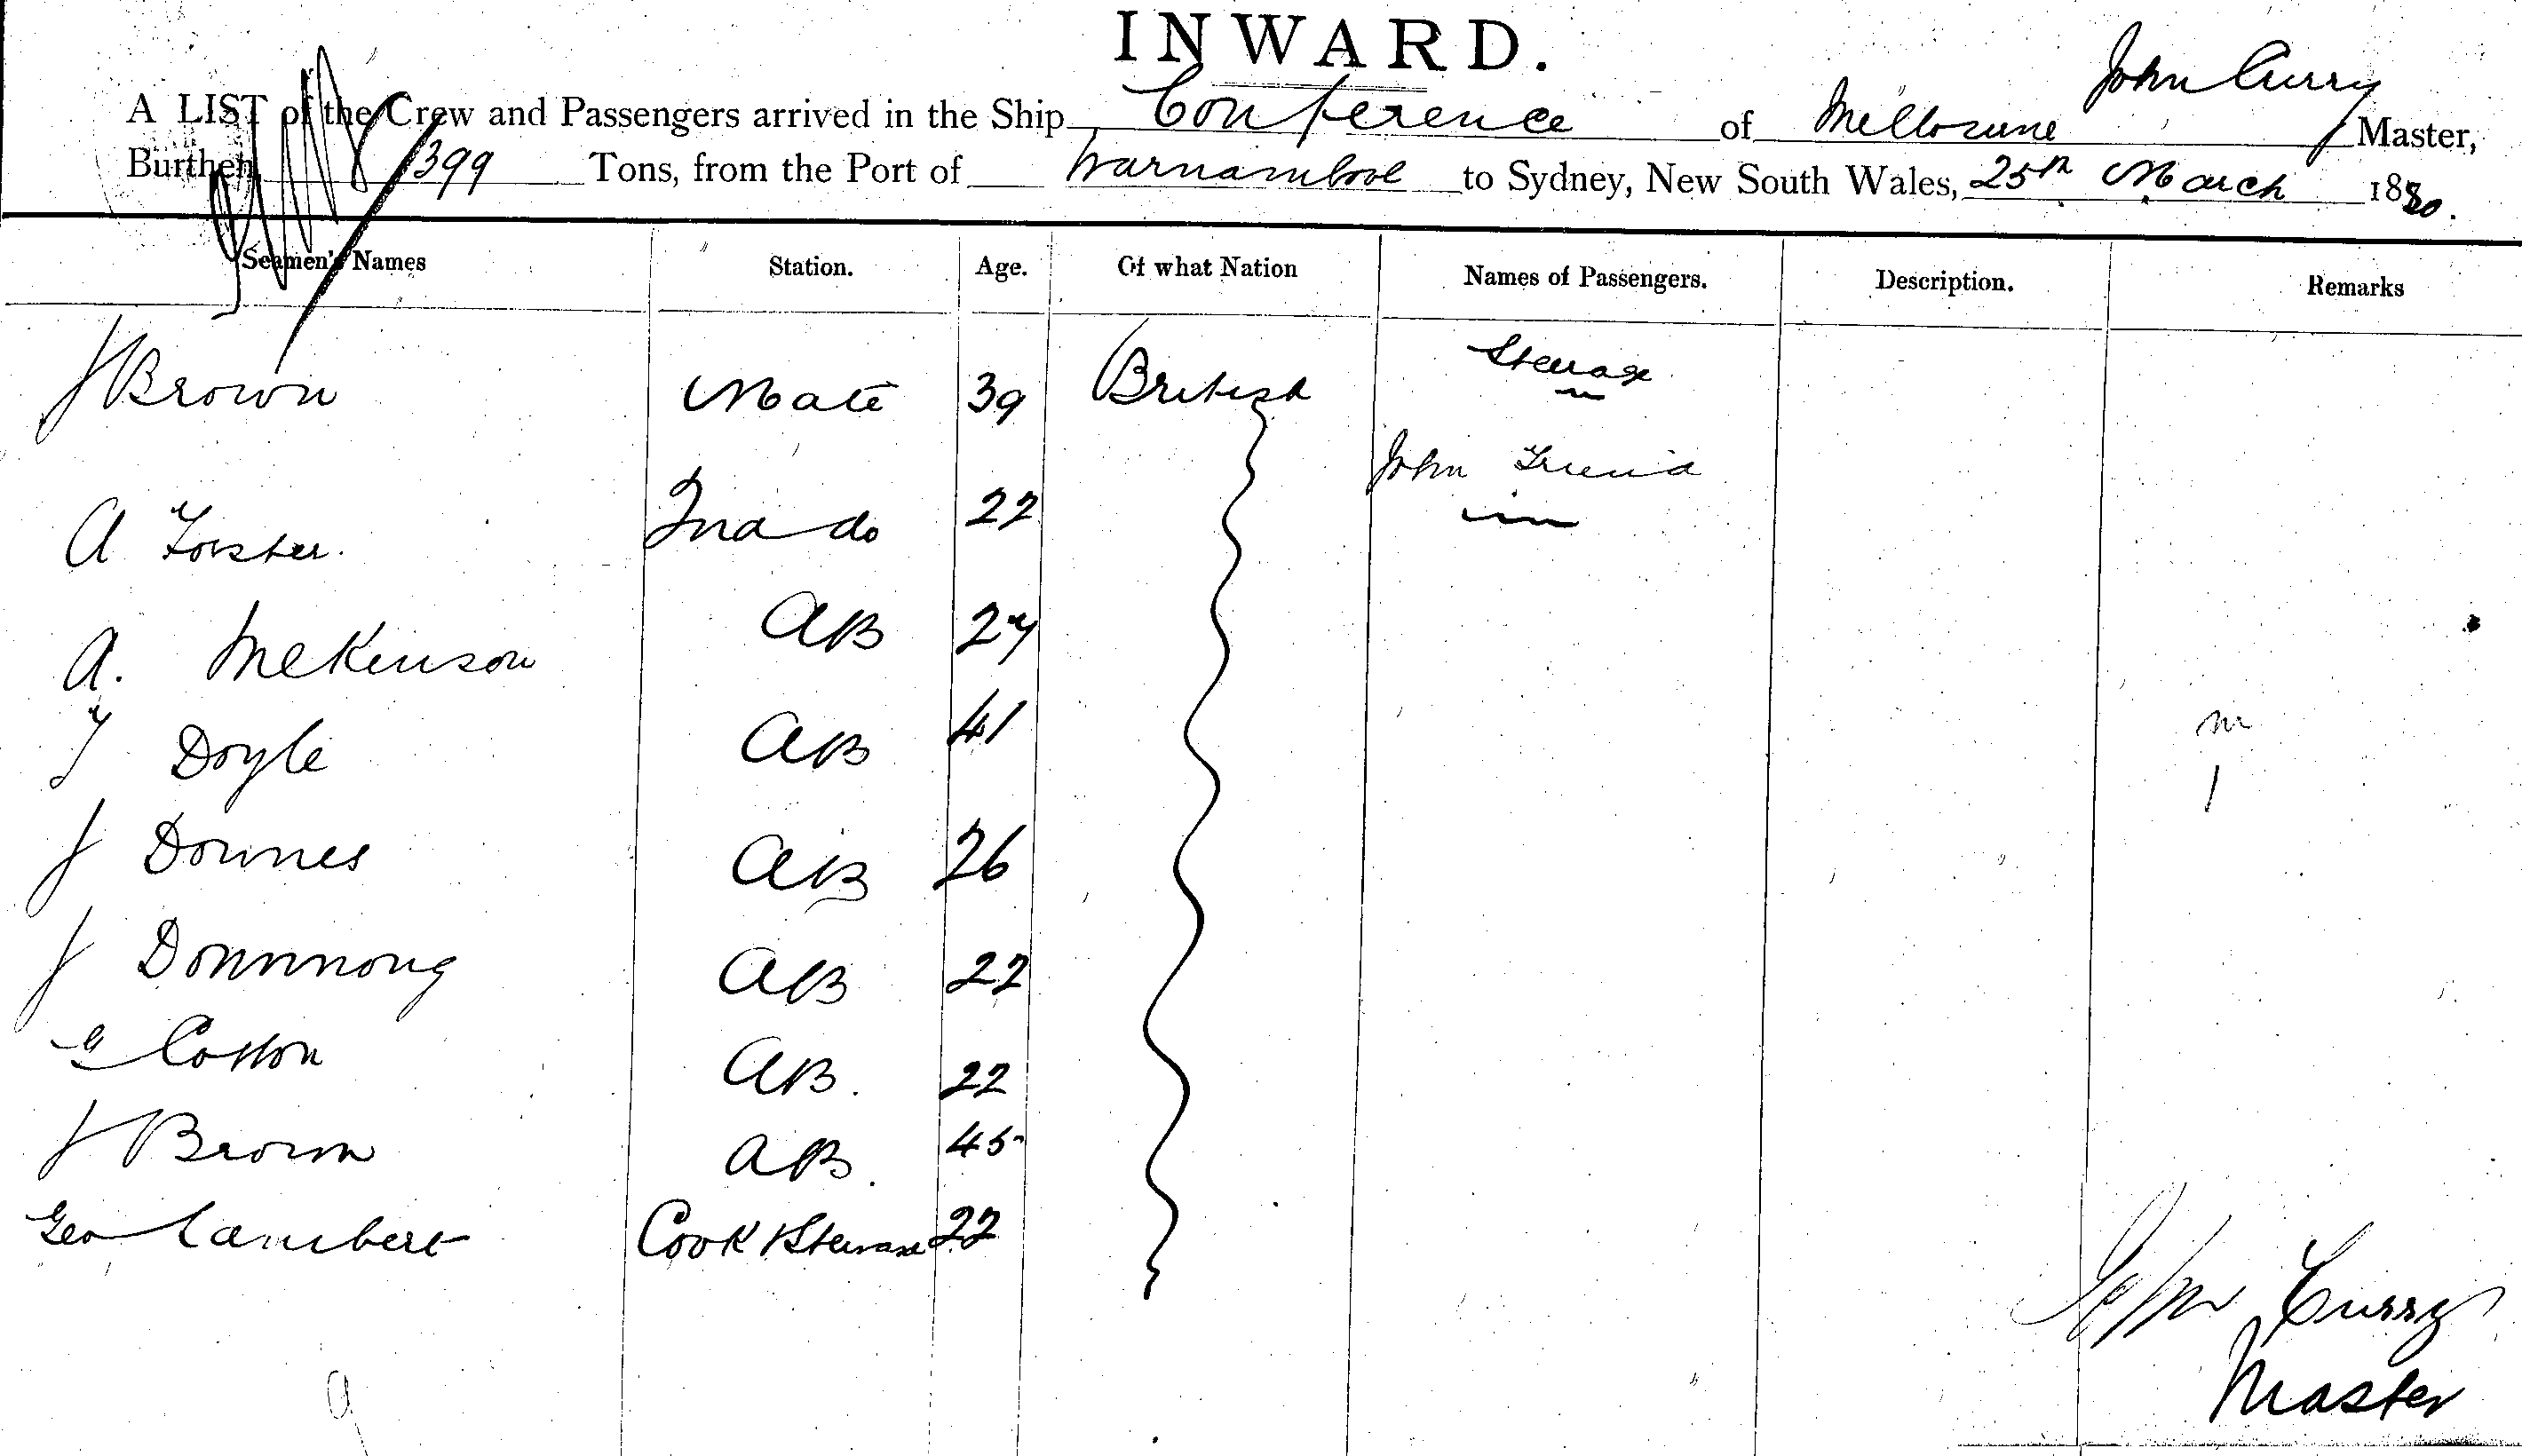 INWARD.
John Curry
A LIST of the Crew and Passengers arrived in the Ship Conference of Melbourne Master,
Burthen 399 Tons, from the Port of Warnambool to Sydney, New South Wales, 25th March 1880.
Seamen's Names Station. Age. Of what Nation Names of Passengers. Description. Remarks
J Brown Mate 39 British Steerage
A Forster. 2nd do 22 John Friend
A. McKinson AB 27
T Doyle AB 41
J Downes AB 26
J AB 22
G Cotton AB. 22
J Brown AB. 45
Geo Lambert Cook & Steward 22
John Curry
Master